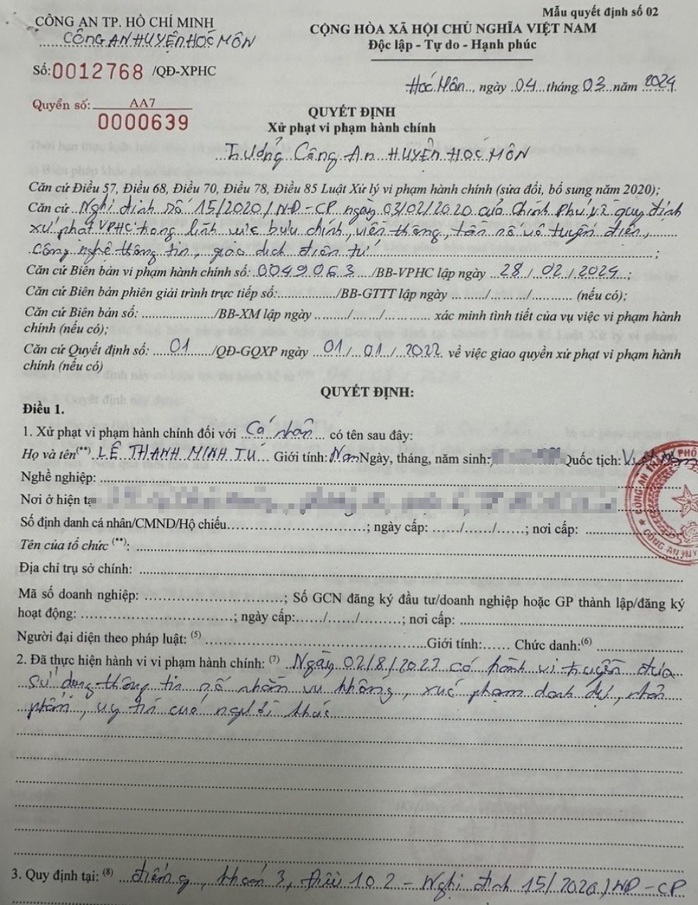 Mẫu quyết định số 02
CÔNG AN TP. HỒ CHÍ MINH
CÔNG AN HUYỆN HÓC MÔN
CỘNG HÒA XÃ HỘI CHỦ NGHĨA VIỆT NAM
Độc lập - Tự do - Hạnh phúc
Số: 0012768 /QĐ-XPHC
Hóc Môn, ngày 04 tháng 03 năm 2024
Quyển số: AA7
0000639
QUYẾT ĐỊNH
Xử phạt vi phạm hành chính
Trưởng Công An HUYỆN HÓC MÔN
Căn cứ Điều 57, Điều 68, Điều 70, Điều 78, Điều 85 Luật Xử lý vi phạm hành chính (sửa đổi, bổ sung năm 2020);
Căn cứ Nghị định số 15/2020/NĐ-CP ngày 03/02/2020 của Chính Phủ về quy định
xử phạt VPHC trong lĩnh vực bưu chính, viễn thông, tần số vô tuyến điện,
Công nghệ thông tin, giao dịch điện tử ;
Căn cứ Biên bản vi phạm hành chính số: 0049063 /BB-VPHC lập ngày 28/02/2024 ;
Căn cứ Biên bản phiên giải trình trực tiếp số:............/BB-GTTT lập ngày ......./......./........... (nếu có);
Căn cứ Biên bản số: ............/BB-XM lập ngày ......./......./........... xác minh tình tiết của vụ việc vi phạm hành
chính (nếu có);
Căn cứ Quyết định số: 01 /QĐ-GQXP ngày 01/01/2022 về việc giao quyền xử phạt vi phạm hành
chính (nếu có)
QUYẾT ĐỊNH:
Điều 1.
1. Xử phạt vi phạm hành chính đối với Cá nhân có tên sau đây:
Họ và tên(**) LÊ THANH MINH TÚ Giới tính: Nam Ngày, tháng, năm sinh: Quốc tịch:
Nghề nghiệp:
Nơi ở hiện tạ
Số định danh cá nhân/CMND/Hộ chiếu..................; ngày cấp: ....../....../......; nơi cấp: ............
Tên của tổ chức (**): ............
Địa chỉ trụ sở chính: ............
Mã số doanh nghiệp: ..................; Số GCN đăng ký đầu tư/doanh nghiệp hoặc GP thành lập/đăng ký
hoạt động: ..................; ngày cấp:....../....../......; nơi cấp: ............
Người đại diện theo pháp luật: (5) ............Giới tính:...... Chức danh:(6) ............
2. Đã thực hiện hành vi vi phạm hành chính: (7) Ngày 02/8/2023 có hành vi truyền đưa
sử dụng thông tin số nhằm vu khống, xúc phạm danh dự, nhân
phẩm, uy tín của người khác
3. Quy định tại: (8) điểm g, khoản 3, Điều 102 - Nghị định 15/2020/NĐ-CP